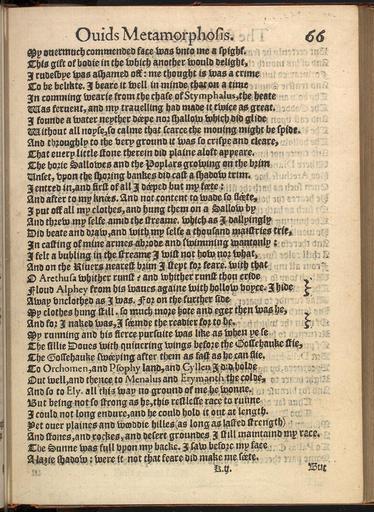 Ouids Metamorphosis. 66
My ouermuch commended face was vnto me a spight.
This gift of bodie in the which another would delight,
I rudesbye was ashamed off: me thought is was a crime
To be belikte. I beare it well in minde that on a time
In comming wearie from the chase of Stymphalus, the heate
Was feruent, and my trauelling had made it twice as great.
I founde a water neyther deepe nor shallow which did glide
Without all noyse, so calme that scarce the mouing might be spide.
And throughly to the very ground it was so crispe and cleare,
That euery little stone therein did plaine aloft appeare.
The horie Sallowes and the Poplars growing on the brim
Vnset, vpon the shoring bankes did cast a shadow trim.
I entred in, and first of all I deeped but my feete:
And after to my knees. And not content to wade so fleete,
I put off all my clothes, and hung them on a Sallow by
And threw my selfe amid the streame, which as I dallyingly
Did beate and draw, and with my selfe a thousand maistries trie,
In casting of mine armes abrode and swimming wantonly:
I felt a bubling in the streame I wist not how nor what,
And on the Riuers nearest brim I stept for feare. with that
O Arethusa whither runst? and whither runst thou cride
Floud Alphey from his waues againe with hollow voyce. I hide
Away vnclothed as I was. For on the further side
My clothes hung still. so much more hote and eger then was he,
And for I naked was, I seemde the readier for to be.
My running and his fierce pursuite was like as when ye se
The sillie Doues with quiuering wings before the Gossehauke flie,
The Gossehauke sweeping after them as fast as he can flie.
To Orchomen, and Psophy land, and Cyllen I did holde
Out well, and thence to Menalus and Erymanth the colde,
And so to Ely. all this way no ground of me he wonne.
But being not so strong as he, this restlesse race to runne
I could not long endure, and he could hold it out at length.
Yet ouer plaines and wooddie hilles (as long as lasted strength)
And stones, and rockes, and desert groundes I still maintaind my race.
The Sunne was full vpon my backe. I saw before my face
A lazie shadow: were it not that feare did make me see't.
K.ij. But